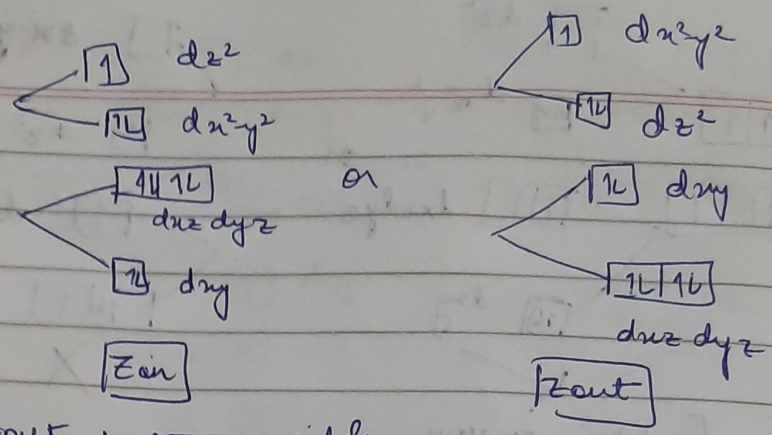 1 dz²
1L dx²-y²
1L 1L
dxz dyz
1L dxy
Z in
or
1 dx²-y²
1L dz²
1L dxy
1L 1L
dxz dyz
Z out